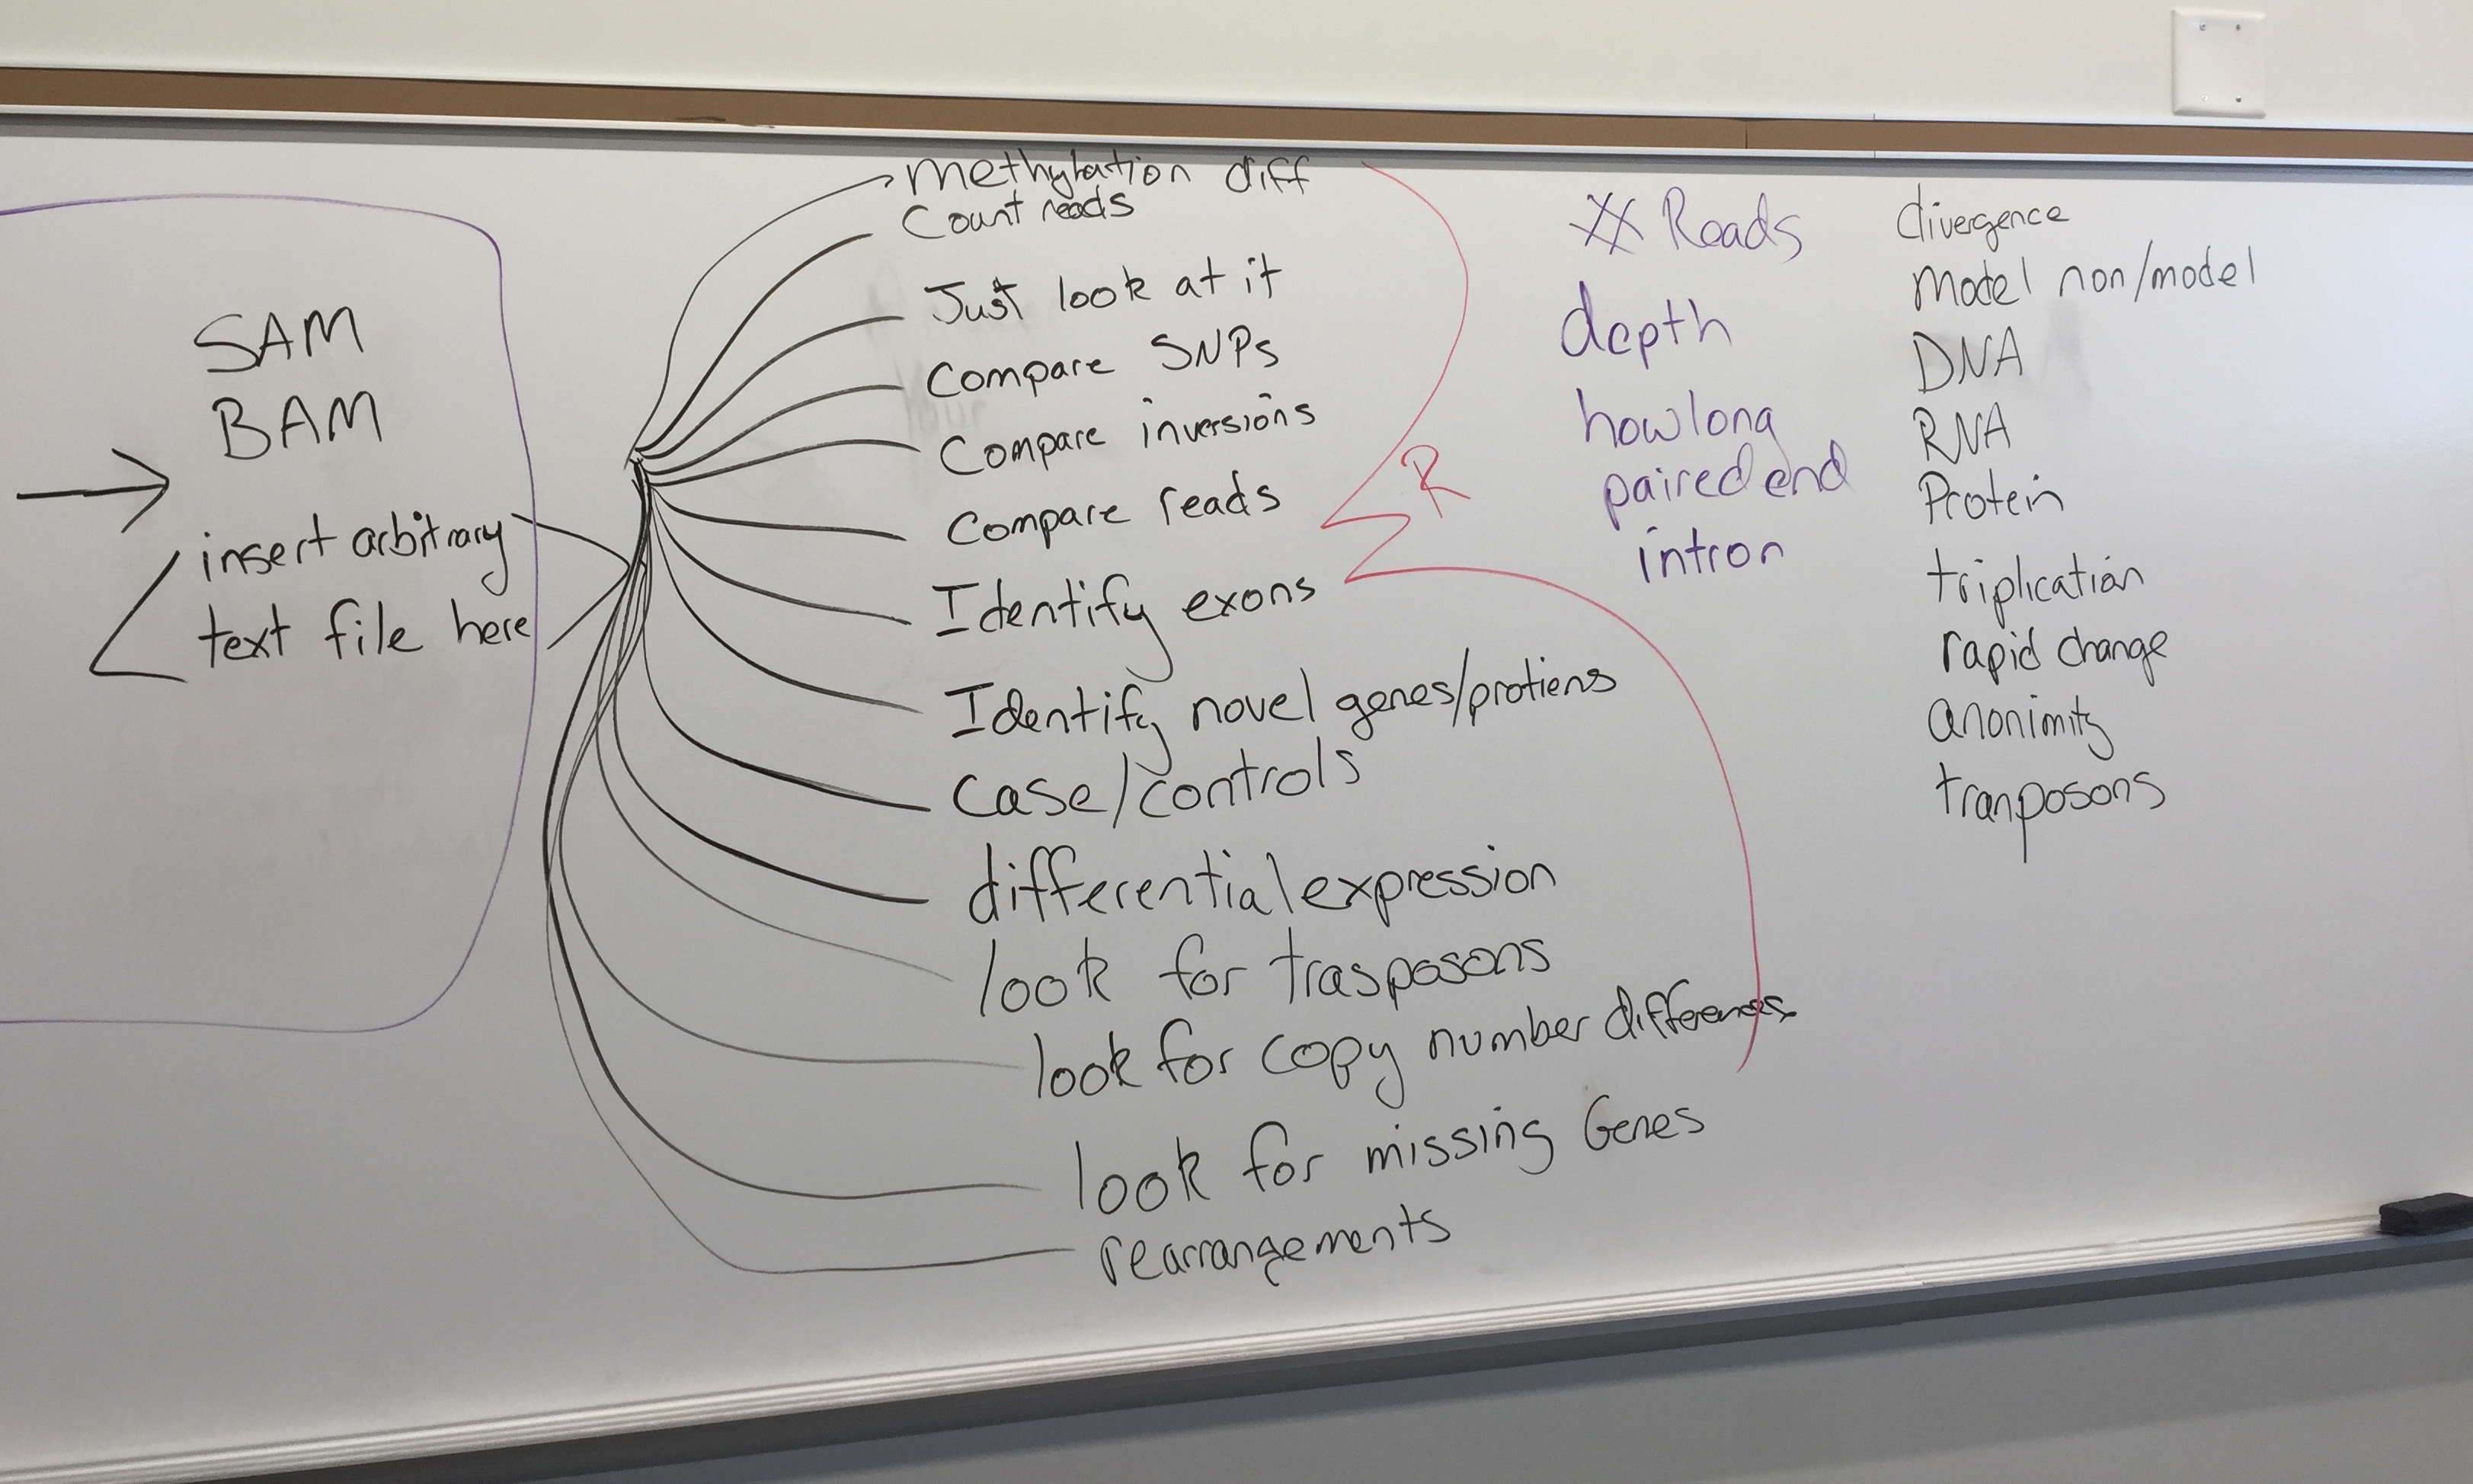 SAM
BAM
insert arbitrary
text file here
methylation diff
Count reads
Just look at it
Compare SNPs
Compare inversions
Compare reads
Identify exons
Identify novel genes/protiens
Case/controls
differential expression
look for trasposons
look for copy number differences
look for missing Genes
rearrangements
R
# Reads
depth
how long
paired end
intron
divergence
Model non/model
DNA
RNA
Protein
triplication
rapid change
anonimity
tranposons